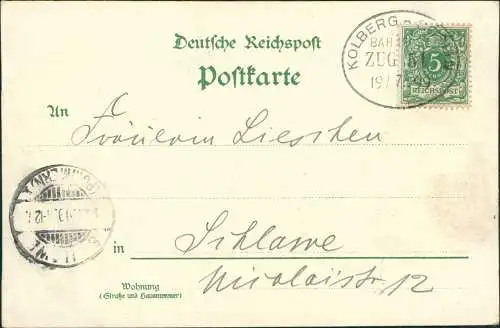 Deutsche Reichspost
Postkarte
KOLBERG
BAH
ZUG
19/7
5
REICHSPOST
An
Fräulein Lieschen
in Schlawe
Nicolaistr. 12
Wohnung
(Straße und Hausnummer)